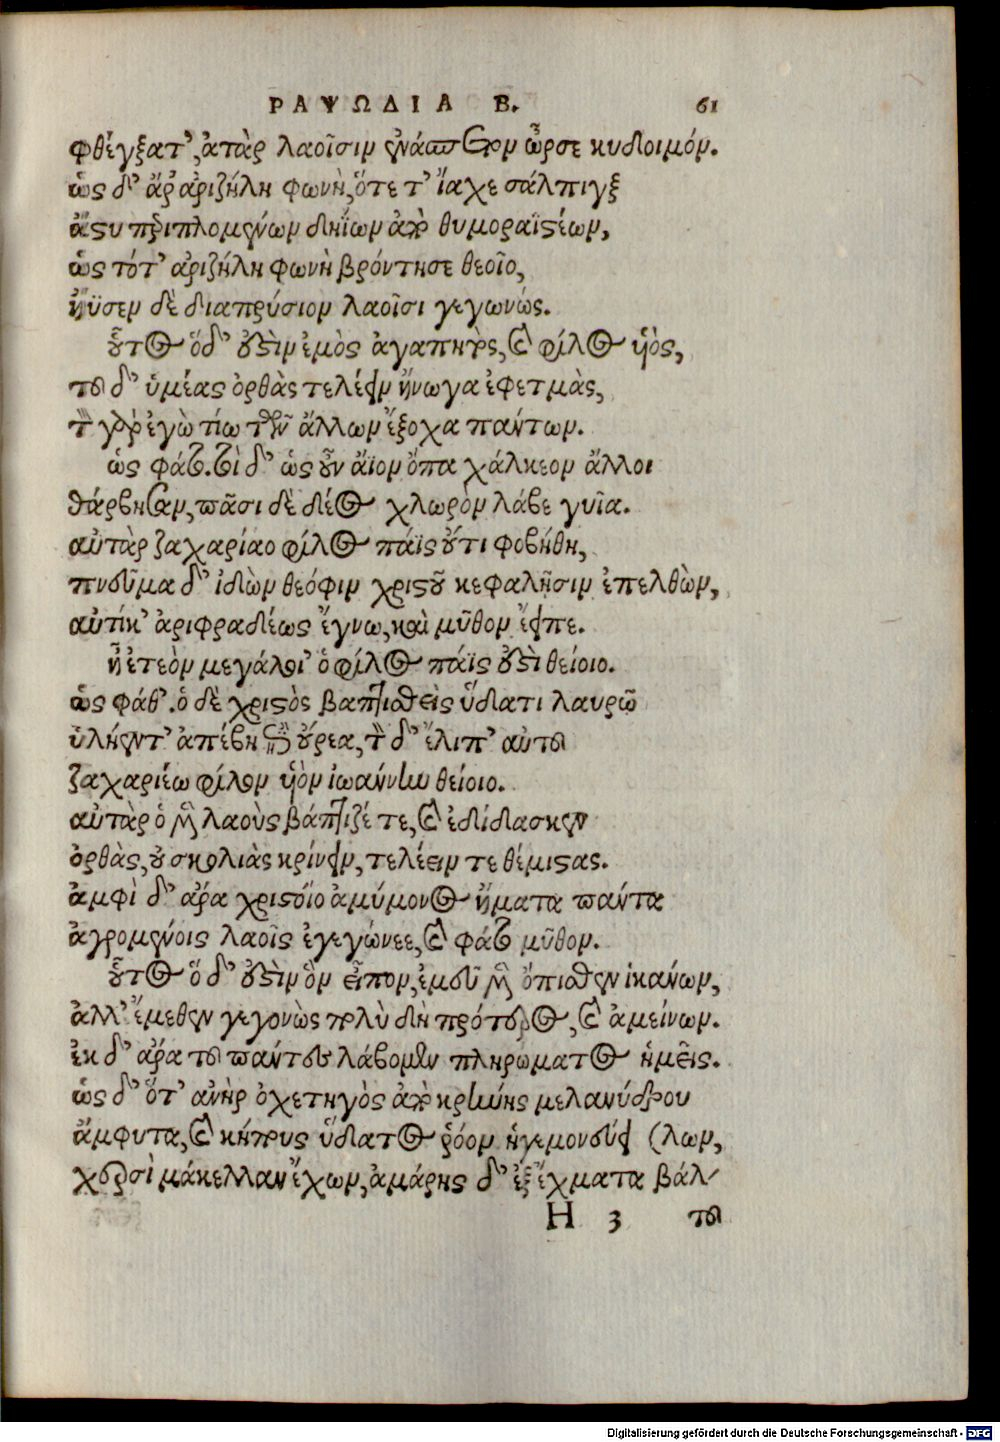 ΡΑΨΩΔΙΑ Β. 61
φθέγξατ', ἀτὰρ λαοῖσιν ἐνάασπετον ὦρσε κυδοιμόν.
ὡς δ' ἄρ' ἀριζήλη φωνὴ, ὅτε τ' ἴαχε σάλπιγξ
ἄστυ περιπλομένων δηΐων ὑπὸ θυμοραϊστέων,
ὣς τότ' ἀριζήλη φωνὴ βρόντησε θεοῖο,
ἤϋσεν δὲ διαπρύσιον λαοῖσι γεγωνώς.
οὗτος ὅδ' ἐστὶν ἐμὸς ἀγαπητὸς, καὶ φίλος υἱὸς,
τοῦ δ' ὑμέας ὀρθὰς τελέειν ἤνωγα ἐφετμὰς,
τὸν γὰρ ἐγὼ τίω τῶν ἄλλων ἔξοχα πάντων.
ὡς φάτο. τοὶ δ' ὡς οὖν ἄϊον ὄπα χάλκεον ἄλλοι
θάρβησαν, πᾶσι δὲ δέος χλωρὸν λάβε γυῖα.
αὐτὰρ ζαχαρίαο φίλος πάϊς οὔτι φοβήθη,
πνεῦμα δ' ἰδὼν θεόφιν χριστοῦ κεφαλῆσιν ἐπελθὼν,
αὐτίκ' ἀριφραδέως ἔγνω, καὶ μῦθον ἔειπε.
ἦ ἐτεὸν μεγάλοι' ὁ φίλος πάϊς ἐστὶ θείοιο.
ὣς φάθ'. ὁ δὲ χριστὸς βαπτισθεὶς ὕδατι λαυρῷ
ὑλήεντ' ἀπέβη πρὸς οὔρεα, τὸν δ' ἔλιπ' αὐτοῦ
ζαχαριέω φίλον υἱὸν ἰωάννην θείοιο.
αὐτὰρ ὁ μὲν λαοὺς βάπτιζέ τε, καὶ ἐδίδασκεν
ὀρθὰς, οὐ σκολιὰς κρίνειν, τελέειν τε θέμιστας.
ἀμφὶ δ' ἄρα χριστοῖο ἀμύμονος ἤματα πάντα
ἀγρομένοις λαοῖς ἐγεγώνεε, καὶ φάτο μῦθον.
οὗτος ὅ δ' ἐστὶν ὃν εἶπον, ἐμεῦ μὲν ὄπισθεν ἱκάνων,
ἀλλ' ἔμεθεν γεγονὼς πολὺ δὴ πρότερος, καὶ ἀμείνων.
ἐκ δ' ἄρα τοῦ παντὸς λάβομεν πληρώματος ἡμεῖς.
ὡς δ' ὅτ' ἀνὴρ ὀχετηγὸς ἀπὸ κρήνης μελανύδρου
ἄμφυτα, καὶ κήπους ὕδατος ῥόον ἡγεμονεύει (λων,
χερσὶ μάκελλαν ἔχων, ἀμάρης δ' ἐξ ἔχματα βάλ-
Η 3 τοῦ
Digitalisierung gefördert durch die Deutsche Forschungsgemeinschaft - DFG